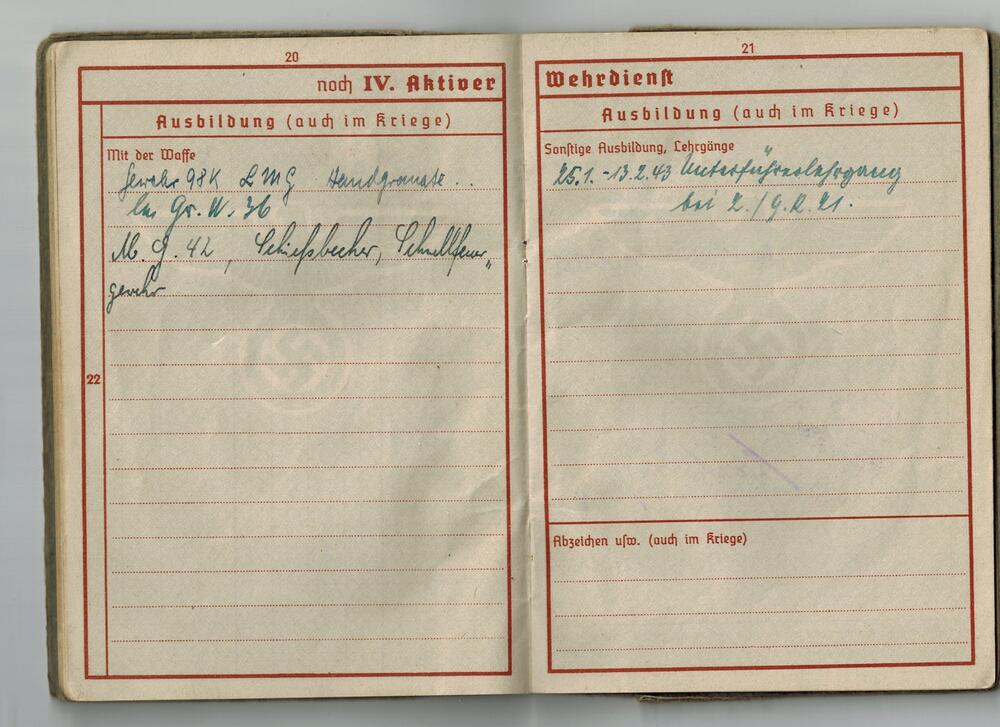 20
noch IV. Aktiver
Ausbildung (auch im Kriege)
Mit der Waffe
Gewehr 98K LMG Handgranate..
le. Gr. W. 36
M. G. 42, Schießbecher, Schnellfeuer„
gewehr
22
21
Wehrdienst
Ausbildung (auch im Kriege)
Sonstige Ausbildung, Lehrgänge
25.1.-13.2.43 Unterführerlehrgang
bei 2./G.R. 21.
Abzeichen usw. (auch im Kriege)